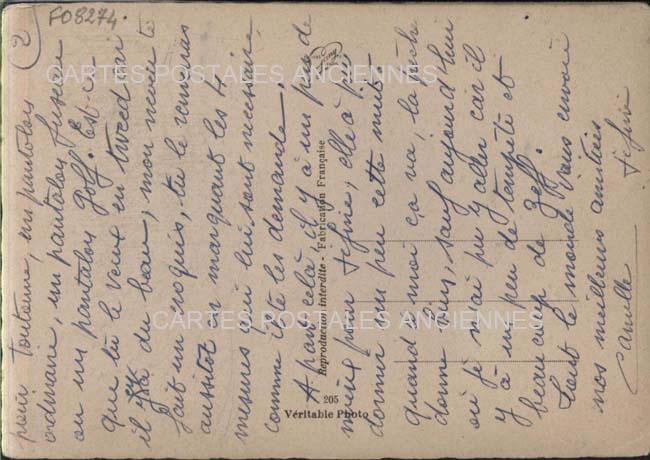 2
F08274.
pour toutanne, un pantalon
ordinaire, un pantalon fuseau
ou un pantalon golf. Est-ce
que tu le veux en tweed ou
il y a du bon, mon
fait un croquis, tu le renverras
aussitot en marquant les 4
mesures qui lui sont necessaire,
comme il te les demande.
A part cela, il y à un peu de
mieux pour Fifine, elle à pu
dormir un peu cette nuit.
quand à moi ça va, la pêche
donne bien, sauf aujourd'hui
où je n'ai pu y aller car il
y à un peu de tempête et
beaucoup de Zeff.
Tout le monde vous envoie
nos meilleurs amitiés
Camille
Fifine
CARTES POSTALES ANCIENNES
CARTES POSTALES ANCIENNES
Reproduction Interdite - Fabrication Française
205
Véritable Photo